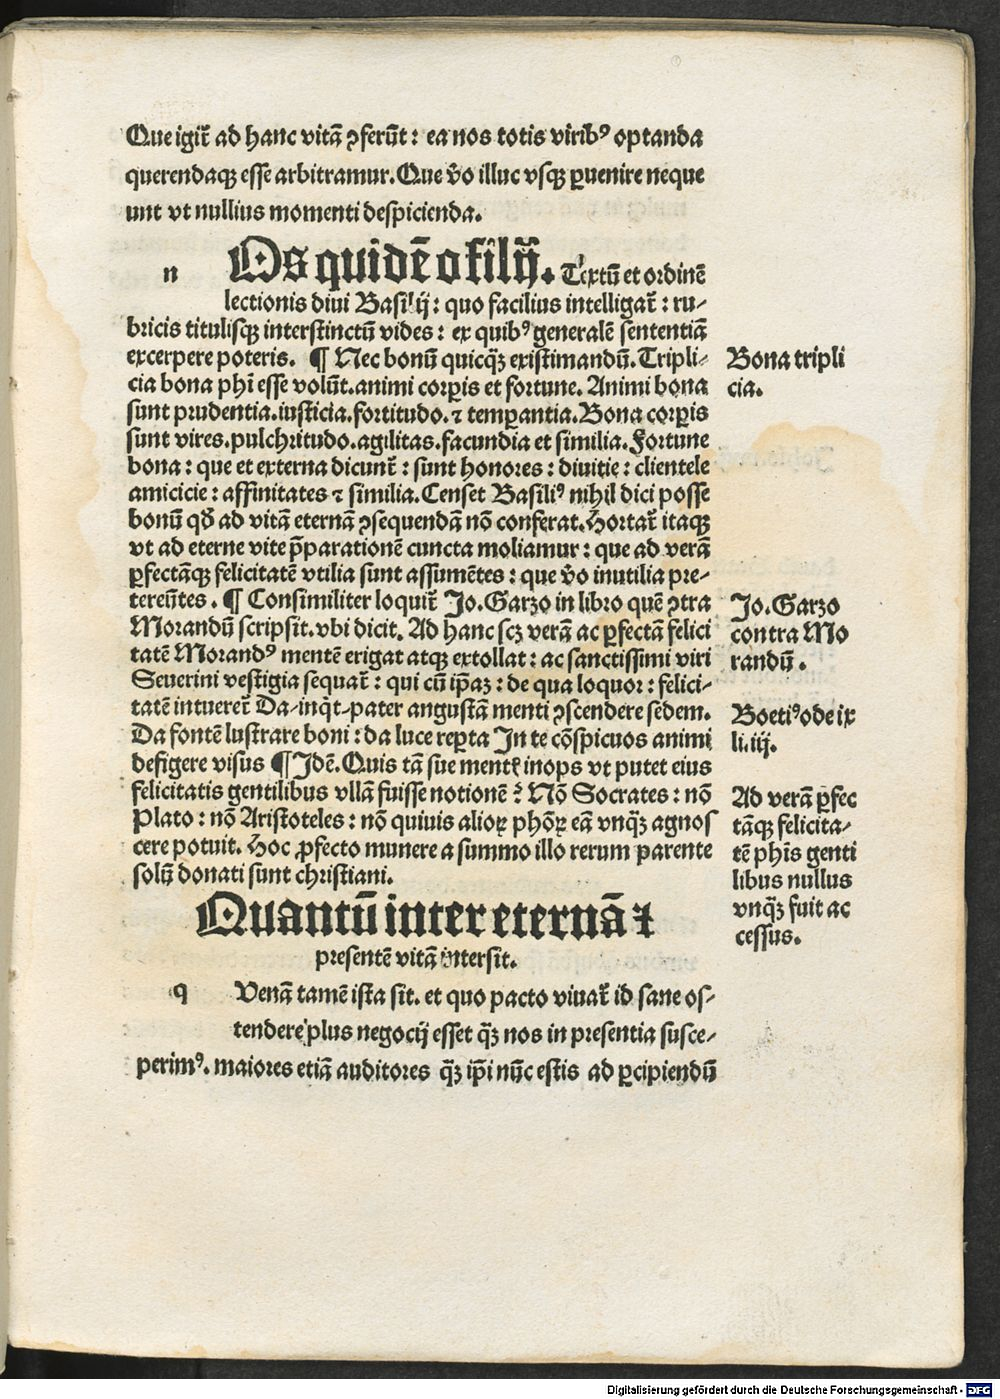 Que igit̄ ad hanc vitā ꝯferūt : ea nos totis virib⁹ optanda
querendaqꝫ esse arbitramur. Que v̄o illuc vsqꝫ ꝑuenire neque
unt vt nullius momenti despicienda.
n Os quidē o filij. Textū et ordinē
lectionis diui Basilij : quo facilius intelligat̄ : ru-
bricis titulisqꝫ interstinctū vides : ex quib⁹ generalē sententiā
excerpere poteris. ¶ Nec bonū quicqꝫ̄ existimandū. Tripli-
cia bona ph̄i esse volūt. animi corꝑis et fortune. Animi bona
sunt prudentia. iusticia. fortitudo. ⁊ temꝑantia. Bona corꝑis
sunt vires. pulchritudo. agilitas. facundia et similia. Fortune
bona : que et externa dicunt̄ : sunt honores : diuitie : clientele
amicicie : affinitates ⁊ similia. Censet Basili⁹ nihil dici posse
bonū qd̄ ad vitā eternā ꝯsequendā nō conferat. Hortat̄ itaqꝫ
vt ad eterne vite p̄parationē cuncta moliamur : que ad verā
ꝑfectāqꝫ felicitatē vtilia sunt assumētes : que v̄o inutilia pre-
tereūtes. ¶ Consimiliter loquit̄ Jo. Garzo in libro quē ꝯtra
Morandū scripsit. vbi dicit. Ad hanc scꝫ verā ac ꝑfectā felici
tatē Morand⁹ mentē erigat atqꝫ extollat : ac sanctissimi viri
Seuerini vestigia sequat̄ : qui cū ip̄aꝫ : de qua loquor : felici-
tatē intueret̄ Da-inq̄t-pater angustā menti ꝯscendere sedem.
Da fontē lustrare boni : da luce reꝑta In te cōspicuos animi
defigere visus ¶ Idē. Quis tā sue mentꝭ inops vt putet eius
felicitatis gentilibus vllā fuisse notionē ? Nō Socrates : nō
Plato : nō Aristoteles : nō quiuis alioꝝ phōꝝ eā vnqꝫ̄ agnos
cere potuit. Hoc ꝓfecto munere a summo illo rerum parente
solū donati sunt christiani.
Quantū inter eternā ⁊
presentē vitā intersit.
q Uenā tamē ista sit. et quo pacto viuat̄ id sane os-
tendere plus negocij esset qꝫ̄ nos in presentia susce-
perim⁹. maiores etiā auditores qꝫ̄ ip̄i nūc estis ad ꝑcipiendū
Bona tripli
cia.
Jo. Garzo
contra Mo
randū.
Boeti⁹ ode ix
li. iij.
Ad verā ꝑfec
tāqꝫ felicita-
tē ph̄is genti
libus nullus
vnqꝫ̄ fuit ac
cessus.
Digitalisierung gefördert durch die Deutsche Forschungsgemeinschaft - DFG